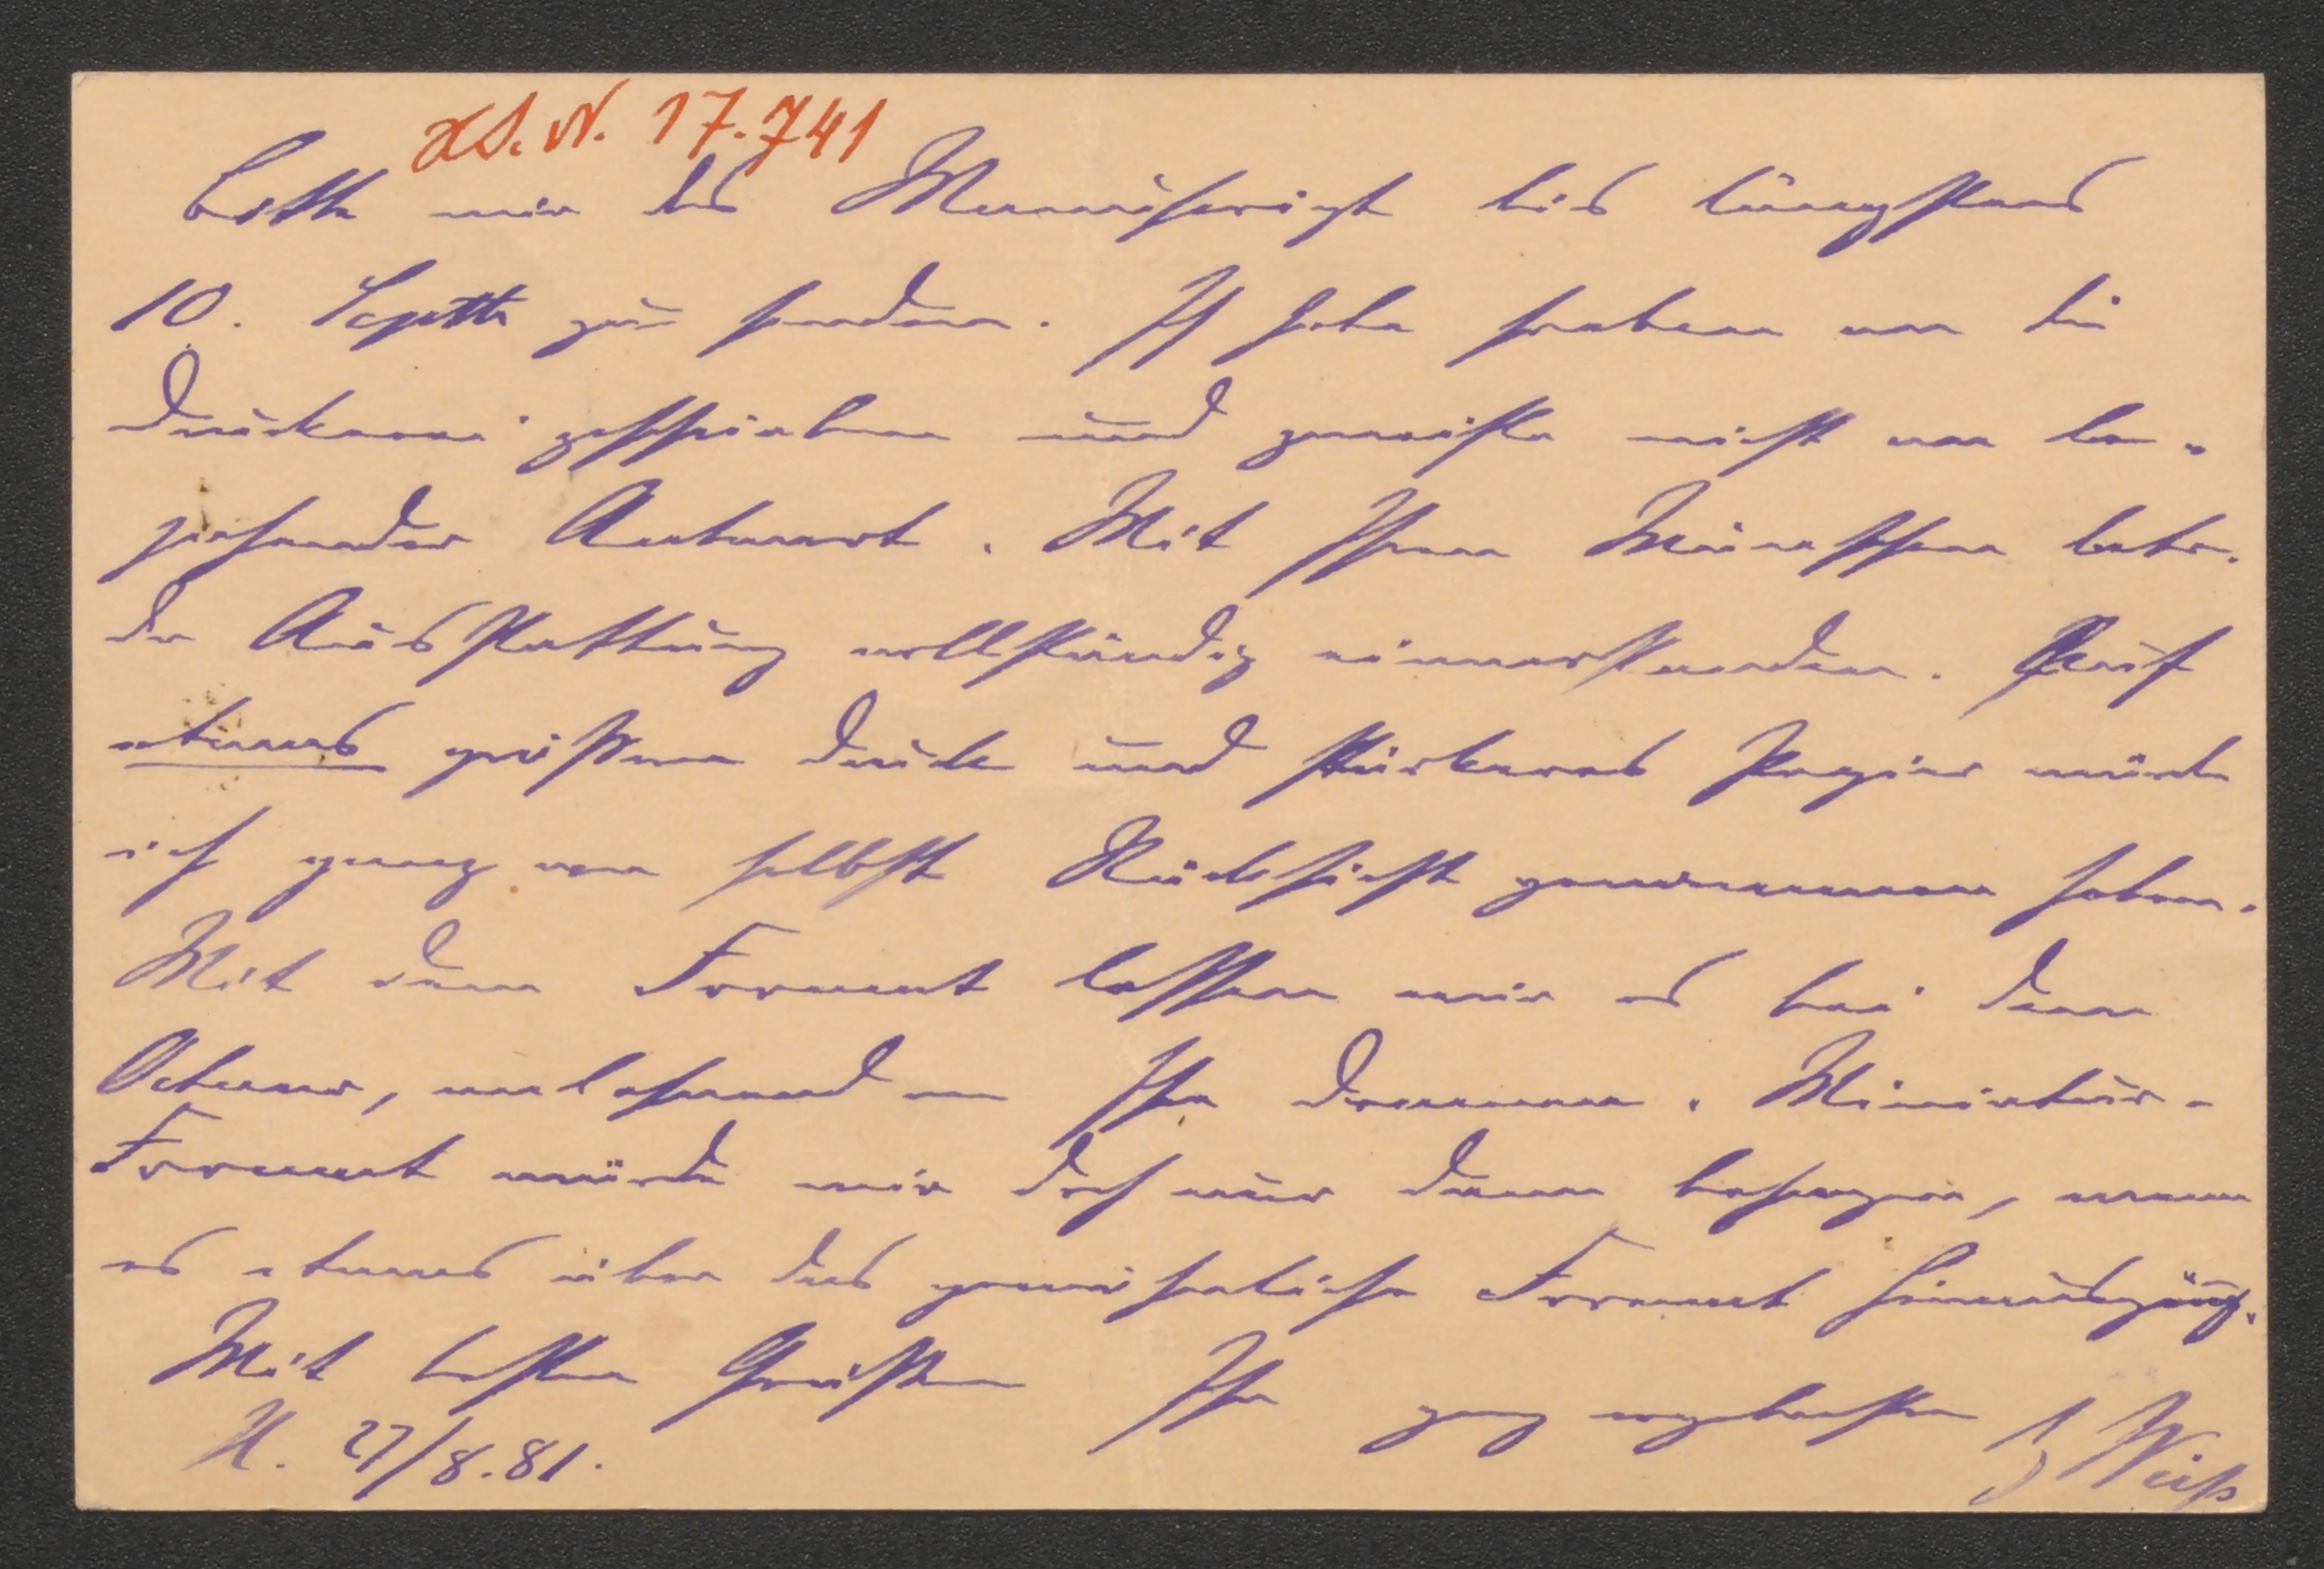 H.I.N. 17.741
Bitte mir das Manuscript bis längstens
10. Septb zu senden. Ich habe soeben an die
Druckerei geschrieben und zweifle nicht an be-
jahender Antwort. Mit Ihren Wünschen betr.
der Ausstattung vollständig einverstanden. Auf
etwas größeren Druck und stärkeres Papier würde
ich ganz von selbst Rücksicht genommen haben.
Mit dem Format lassen wir es bei dem
Octav, anlehnend an Ihre Dramen. Miniatur-
Format würde mir doch nur dann behagen, wenn
es etwas über das gewöhnliche Format hinausging.
Mit besten Grüßen Ihr ganz ergebenster
H. 27/8.81.